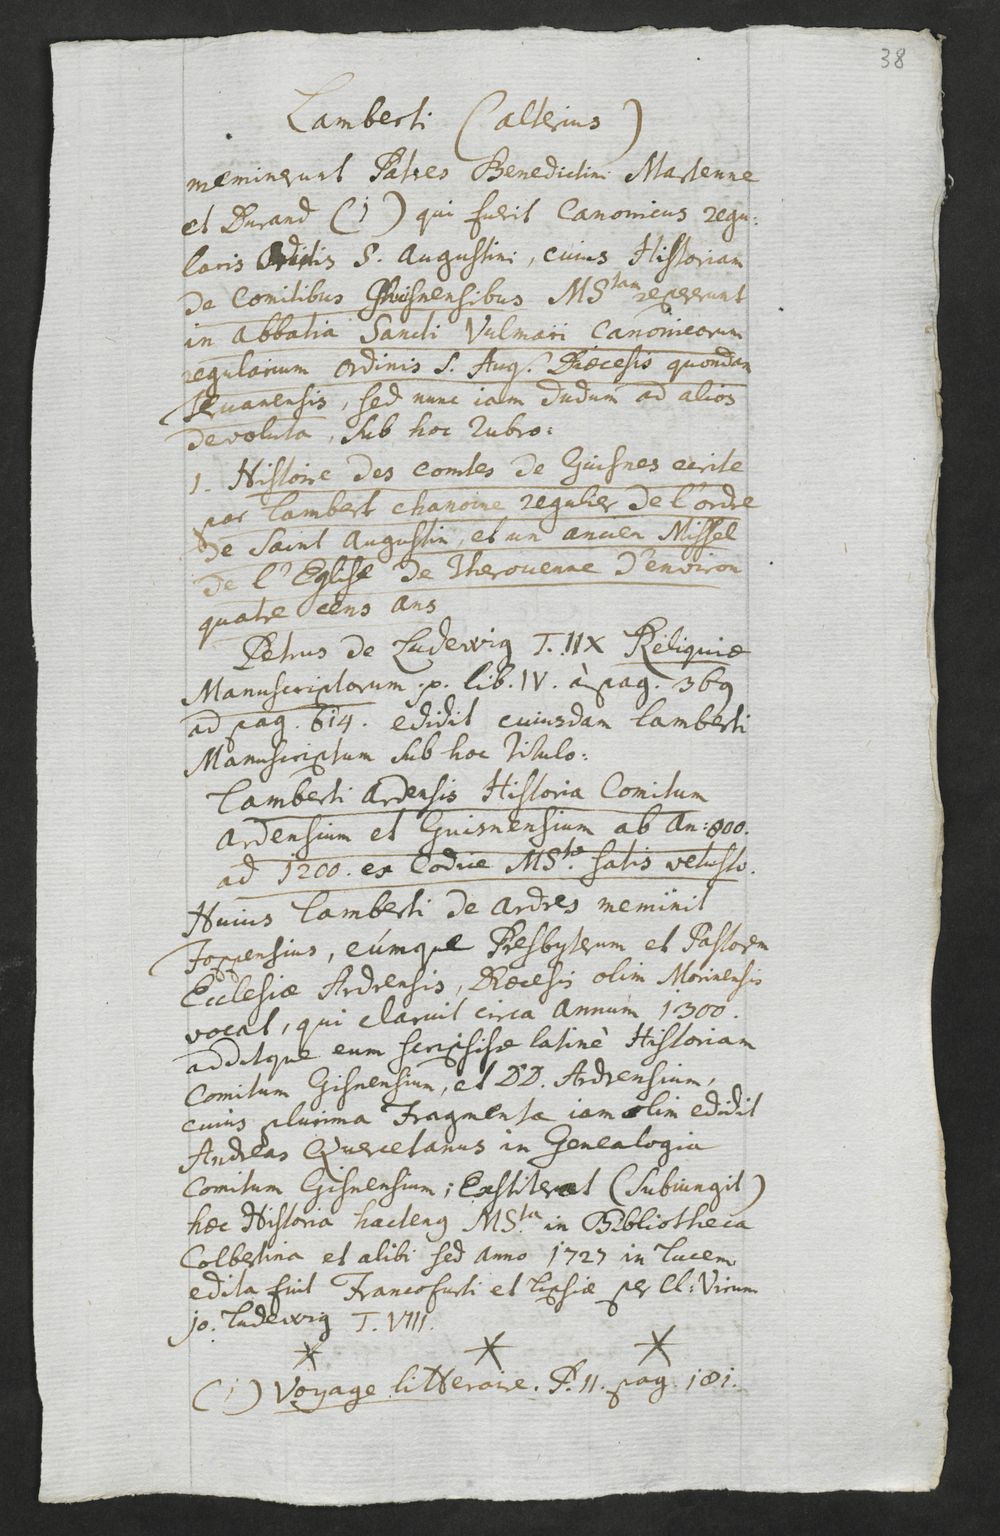 38
Lamberti (alterius)
meminerunt Patres Benedictini Martenne
et Durand (1) qui fuerit Canonicus regu:
laris Ordinis S. Augustini, cuius Historiam
de Comitibus Ghisnensibus MStam repererunt
in Abbatia Sancti Vulmari Canonicorum
regularium Ordinis S. Aug. Dioecesis quondam
Teruanensis, sed nunc iam dudum ad alios
devoluta, sub hoc rubro:
1. Histoire des comtes de Guisnes ecrite
par Lambert chanoine regulier de l'ordre
de Saint Augustin, et un ancien Missel
de l'Eglise de Therouenne d'environ
quatre cens ans
Petrus de Ludewig T. IIX Reliquiæ
Manuscriptorum .p. lib. IV. à pag. 369
ad pag. 614. edidit cuiusdam Lamberti
Manuscriptum sub hoc titulo:
Lamberti Ardensis Historia Comitum
Ardensium et Guisnensium ab An: 800.
ad 1200. ex Codice MSto. satis vetusto.
Huius Lamberti de Ardres meminit
Foppensius, eúmque Presbyterum et Pastorem
Ecclesiæ Ardrensis, Dioecesis olim Morinensis
vocat, qui claruit circa annum 1300.
additque eum scripsisse latinè Historiam
Comitum Gisnensium, et DD. Ardrensium,
cuius plurima Fragmenta iam olim edidit
Andreas Quercetanus in Genealogia
Comitum Gisnensium; Exstiterat (subiungit)
hæc Historia hactenq MSta in Bibliotheca
Colbertina et alibi sed anno 1727 in lucem
edita fuit Francofurti et Lipsiæ per Cl: Virum
jo. Ludewig T. VIII.
(1) Voyage litteraire. P. II. pag. 181.